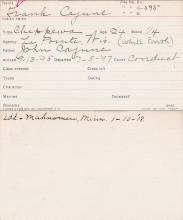 Frank Cajune
Tribe Chippewa Age 24 Blood 1/4
Agency La Pointe, Wis. (White Earth)
Father John Cajune
Arrived 9-13-95 Departed 7-5-97 Cause Conduct
Class entered Class left
Trade Outing
Character
Married Deceased
Remarks
Add- Mahnomen, Minn. 1-10-18